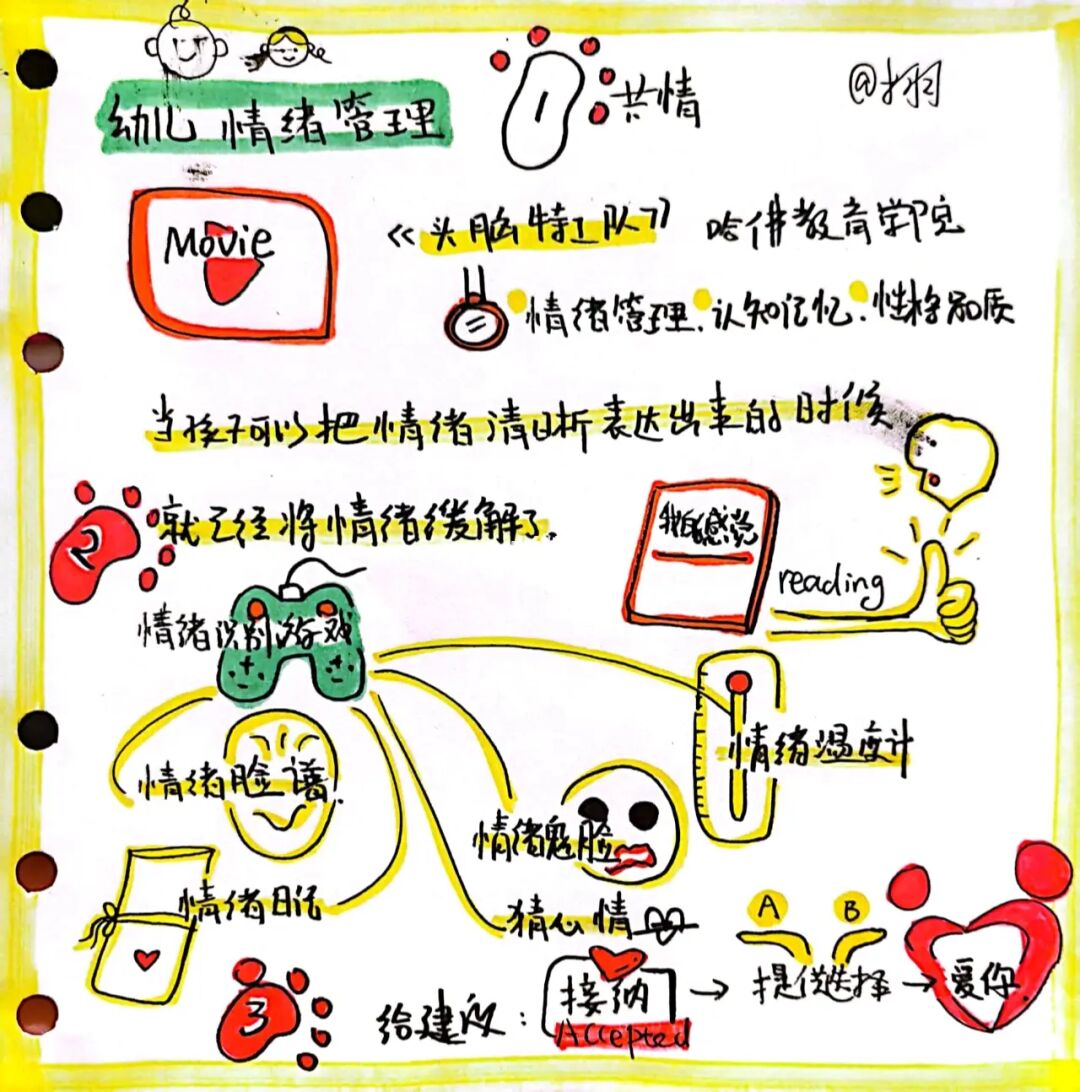 幼儿情绪管理
1 共情
Movie
《头脑特工队》 哈佛教育学院
情绪管理、认知记忆、性格品质
当孩子可以把情绪清晰表达出来的时候
2 就已经将情绪缓解了.
我的感觉
reading
情绪识别游戏
情绪温度计
情绪脸谱!
情绪鬼脸
情绪日记
猜心情
A B
3 给建议: 接纳 → 提供选择 → 爱你.
Accepted